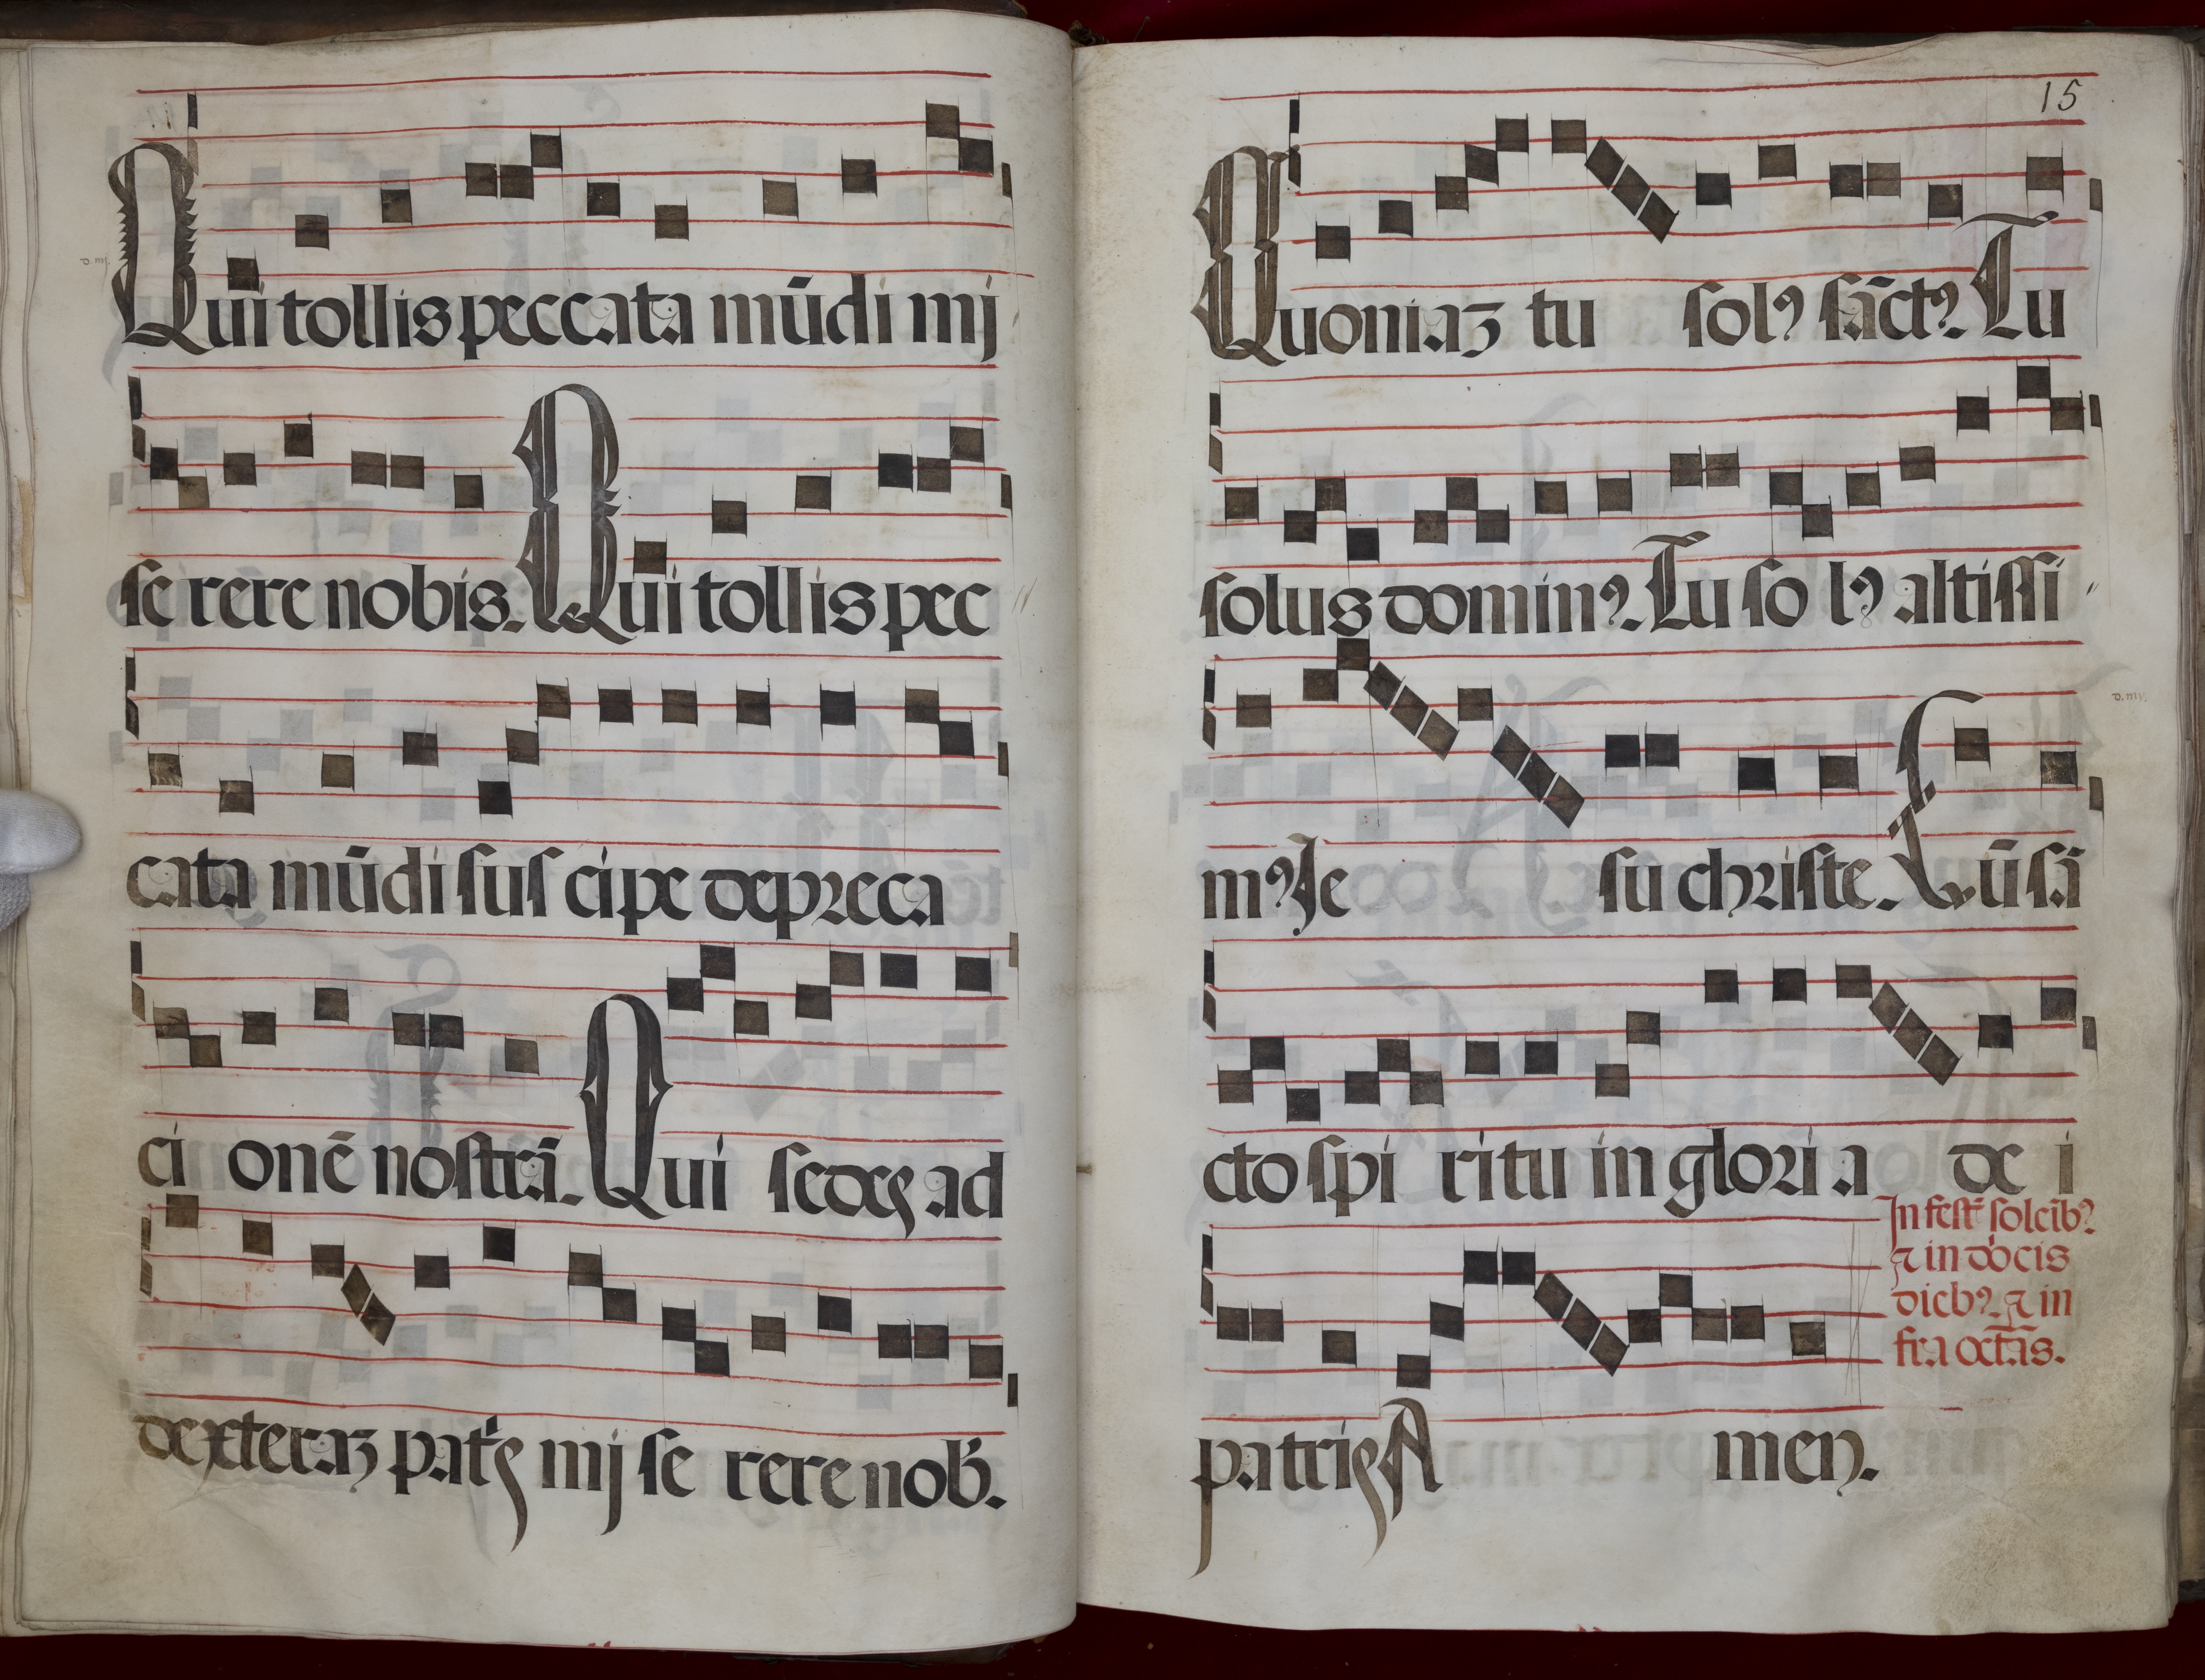 Qui tollis peccata mūdi mj
se rere nobis. Qui tollis pec
cata mūdi suscipe depreca
ci onē nostrā. Qui sedes ad
dexteraz patꝭs mj se rere nob̄.
15
Quoniaz tu solꝰ sāctꝰ. Tu
solus dominꝰ. Tu so lꝰ altissi
mꝰ Je su christe. Cū sā
cto spi ritu in glori a de i
In fest̄ solēibꝰ
⁊ in dōcis
diebꝰ. ⁊ in
fra octās.
patris A men.